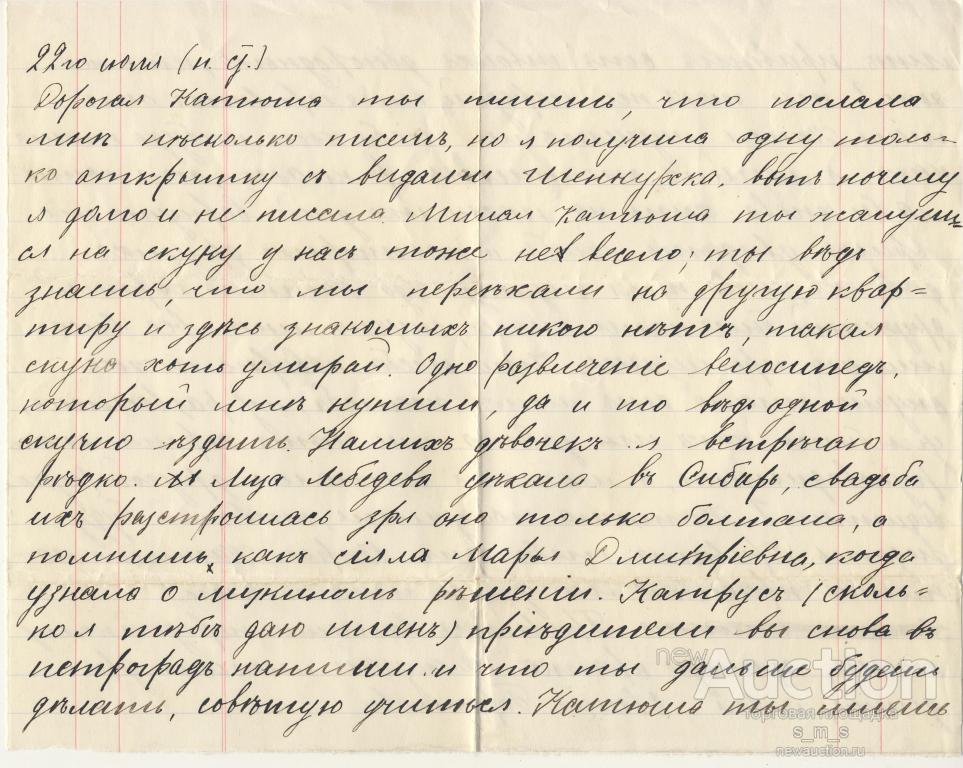 22го июля (н. ст.)
Дорогая Катюша ты пишешь, что послала
мнѣ нѣсколько писемъ, но я получила одну толь=
ко открытку съ видами Шенкурска. вотъ почему
я долго и не писала. Милая Катюша ты жалуеш=
ся на скуку у насъ тоже не весело; ты вѣдь
знаешь, что мы переѣхали на другую квар=
тиру и здѣсь знакомыхъ никого нѣтъ, такая
скука хоть умирай. Одно развлеченіе велосипедъ,
который мнѣ купили, да и то вѣдь одной
скучно ѣздить. Нашихъ дѣвочекъ я встрѣчаю
рѣдко. Лиза Лебедева уѣхала въ Сибирь, свадьба
ихъ разстроилась зря она только болтала, а
помнишь, какъ сіяла Марья Дмитріевна, когда
узнала о лизиномъ рѣшеніи. Катрусь (сколь=
ко я тѣбѣ даю именъ) пріѣдители вы снова въ
петроградъ напиши и что ты дальше будешь
дѣлать, совѣтую учиться. Катюша ты
newAuction
торговая площадка
s_m_s
newauction.ru